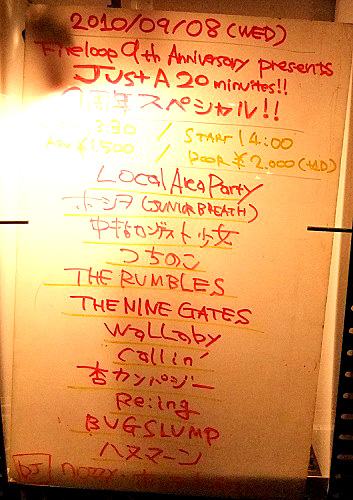 2010/09/08 (WED)
Fireloop 9th Anniversary presents
JUST A 20 minutes!!
9周年スペシャル!!
3:30 / START 14:00
¥1,500 / DOOR ¥2,000 (+1D)
Local Area Party
ホーシヲ (JUNIOR BREATH)
少女
つちのこ
THE RUMBLES
THE NINE GATES
Wallaby
Callin'
杏カンパジー
Re:ing
BUGSLUMP
ハスマーン
DJ